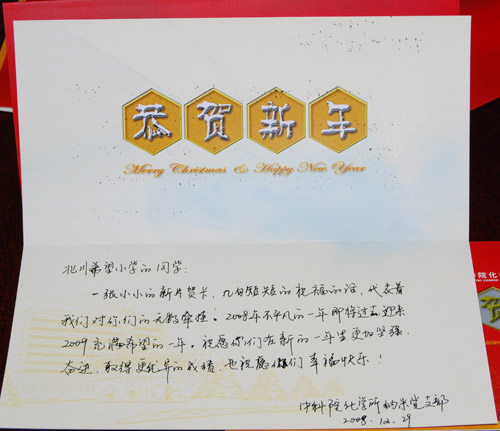 恭贺新年
Merry Christmas & Happy New Year
北川希望小学的同学:
一张小小的新年贺卡，几句短短的祝福的话，代表着
我们对你们的无数牵挂！2008年不平凡的一年即将过去，迎来
2009充满希望的一年。祝愿你们在新的一年里更加坚强、
奋进，取得更优异的成绩，也祝愿你们幸福快乐！
中科院化学所纳米党支部
2008.12.29
院化